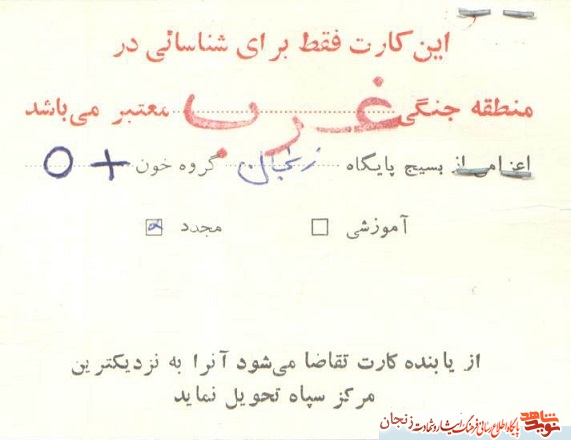 این کارت فقط برای شناسائی در
منطقه جنگی غرب معتبر می باشد
اعزامی از بسیج پایگاه زنجان گروه خون O+
آموزشی مجدد
از یابنده کارت تقاضا می شود آنرا به نزدیکترین
مرکز سپاه تحویل نماید
نوید شاهد پایگاه اطلاع رسانی فرهنگ ایثار و شهادت زنجان